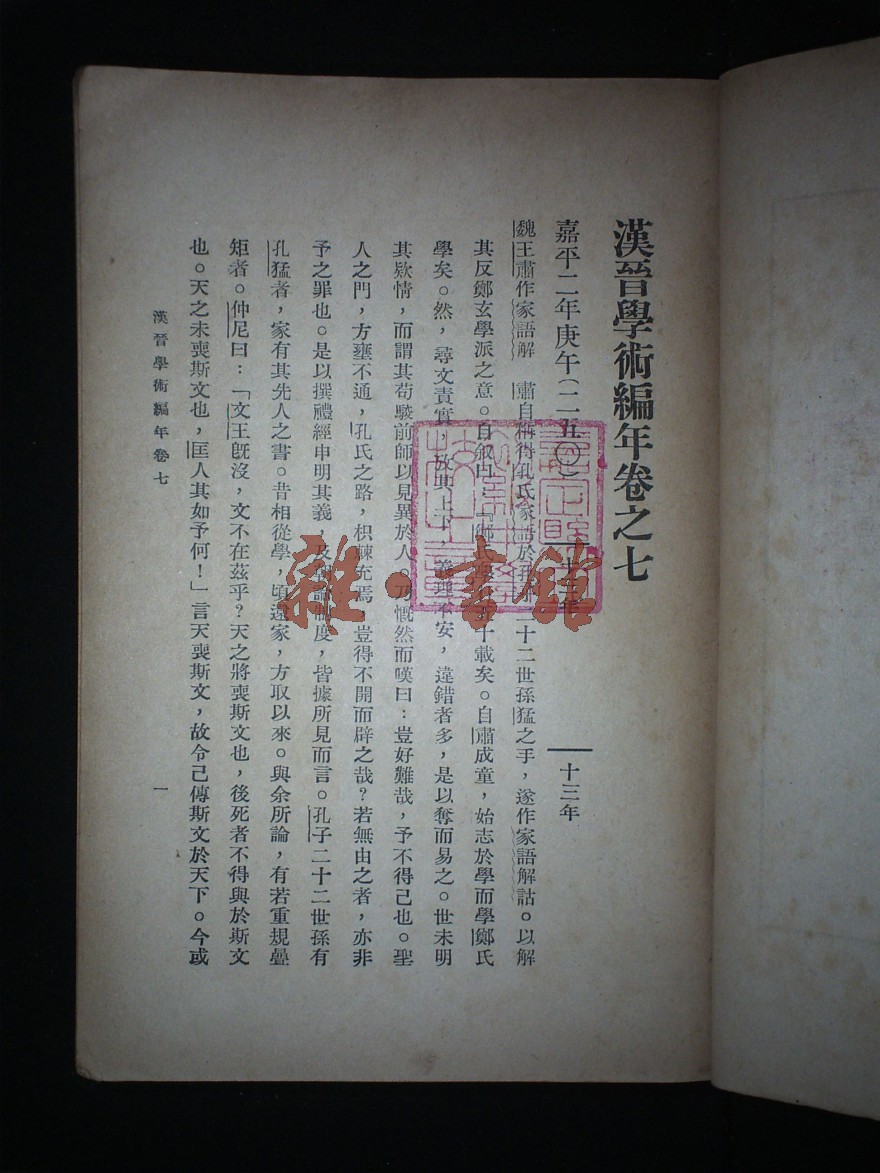 漢晉學術編年卷之七
嘉平二年庚午(二五〇)——十三年
魏王肅作家語解 肅自稱得孔氏家語於孔二十二世孫猛之手，遂作家語解詁。以解
其反鄭玄學派之意。自敘曰：「鄭氏學行五十載矣。自肅成童，始志於學而學鄭氏
學矣。然，尋文責實，考其上下，義理不安，違錯者多，是以奪而易之。世未明
其欵情，而謂其苟駮前師以見異於人。乃慨然而嘆曰：豈好難哉，予不得已也。聖
人之門，方壅不通，孔氏之路，枳棘充焉，豈得不開而辟之哉？若無由之者，亦非
予之罪也。是以撰禮經申明其義，及朝論制度，皆據所見而言。孔子二十二世孫有
孔猛者，家有其先人之書。昔相從學，頃還家，方取以來。與余所論，有若重規疊
矩者。仲尼曰：「文王旣沒，文不在茲乎？天之將喪斯文也，後死者不得與於斯文
也。天之未喪斯文也，匡人其如予何！」言天喪斯文，故令己傳斯文於天下。今或
漢晉學術編年卷七
一
雜·書館